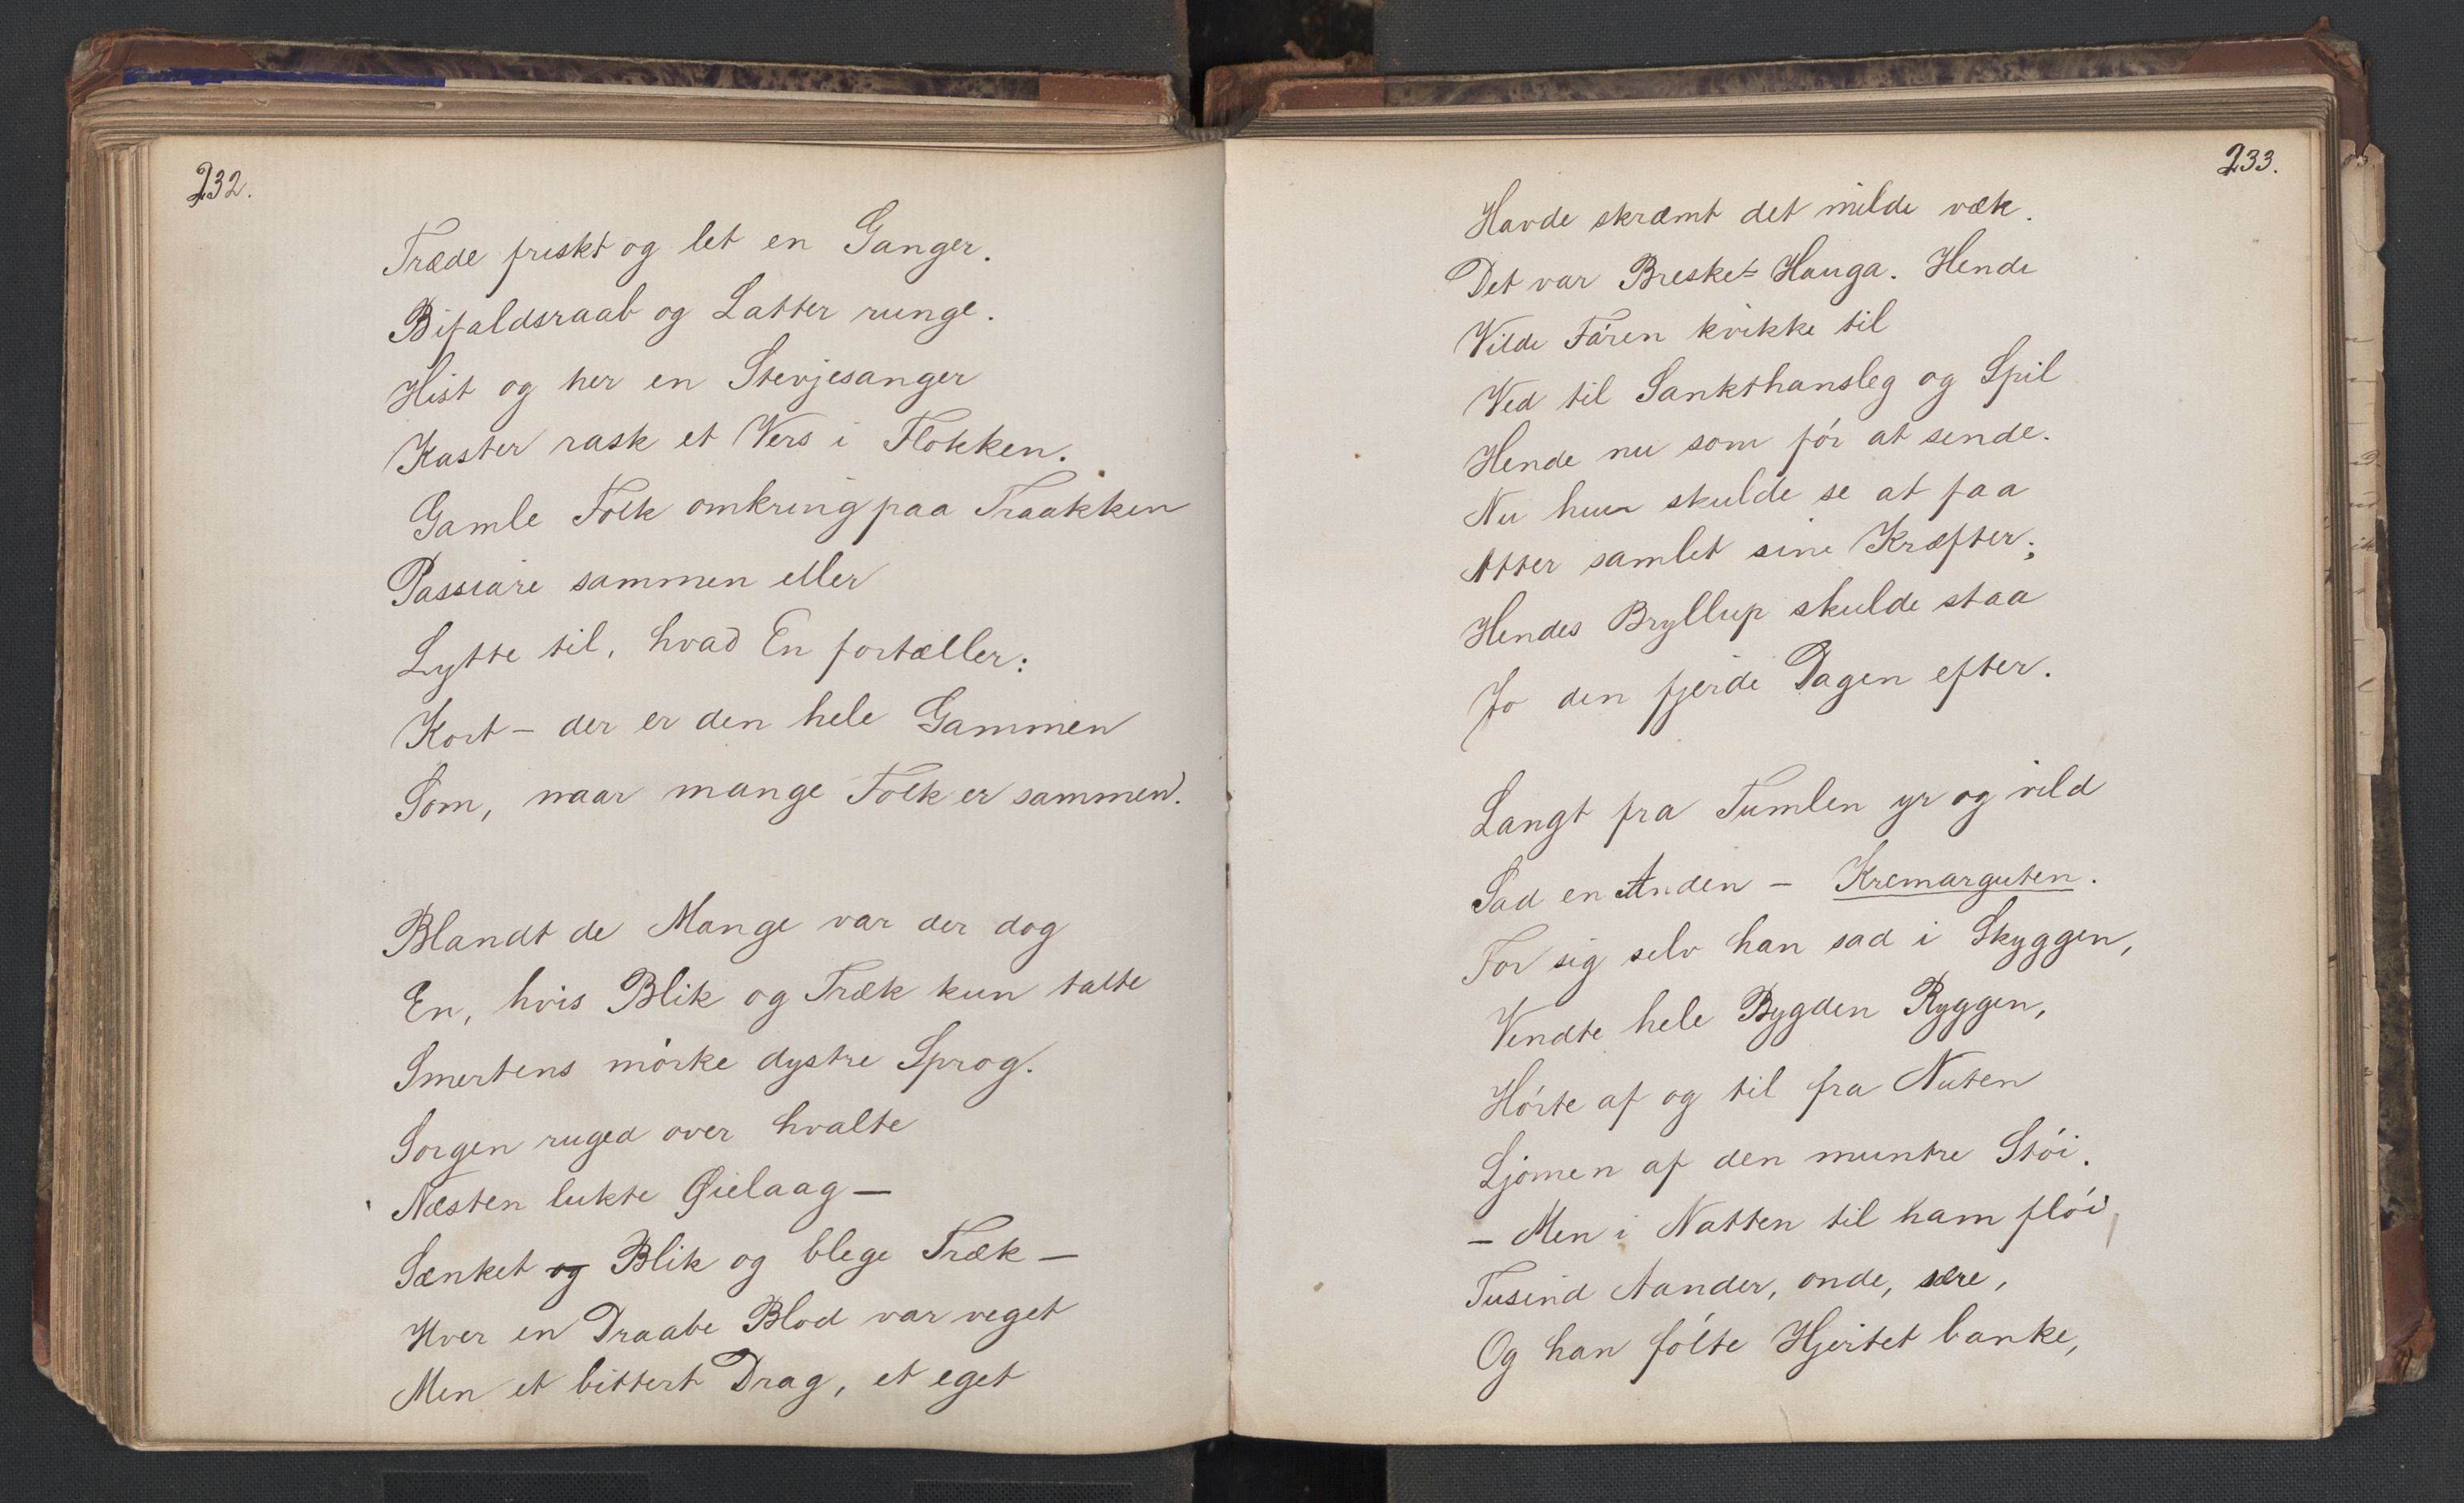 232.
Træde friskt og let en Ganger.
Bifaldsraab og Latter runge.
Hist og her en Stevjesanger
Kaster rask et Vers i Flokken.
Gamle Folk omkring paa Traakken
Passiare sammen eller
Lytte til, hvad En fortæller:
Kort – der er den hele Gammen
Som, naar mange Folk er sammen.
Blandt de Mange var der dog
En, hvis Blik og Træk kun talte
Smertens mórke dystre Sprog.
Sorgen ruged over hvalte
Næsten lukte Øielaag –
Sænket og Blik og blege Træk –
Hver en Draabe Blod var veget
Men et bittert Drag, et eget
233.
Havde skræmt det milde væk.
Det var Breske-Hauga. Hende
Vilde Fáren kvikke til
Ved til Sankthansleg og Spil
Hende nu som fór at sende.
Nu hun skulde se at faa
Atter samlet sine Kræfter;
Hendes Bryllup skulde staa
Jo den fjerde Dagen efter.
Langt fra Tumlen yr og vild
Sad en Anden – Kremarguten.
For sig selv han sad i Skyggen,
Vendte hele Bygden Ryggen,
Hórte af og til fra Nuten
Ljomen af den muntre Stói.
– Men i Natten til ham flói,
Tusind Aander, onde, sære,
Og han fólte Hjertet banke,